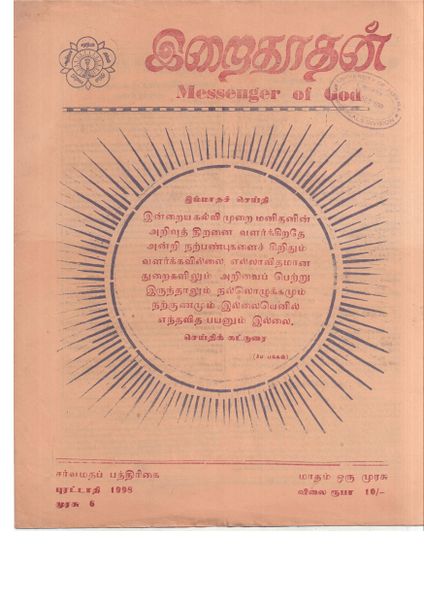 இறைதூதன்
Messenger of God
இம்மாதச் செய்தி
இன்றைய கல்வி முறை மனிதனின்
அறிவுத் திறனை வளர்க்கிறதே
அன்றி நற்பண்புகளைச் சிறிதும்
வளர்க்கவில்லை. எல்லாவிதமான
துறைகளிலும் அறிவைப் பெற்று
இருந்தாலும் நல்லொழுக்கமும்
நற்குணமும் இல்லையெனில்
எந்தவித பயனும் இல்லை.
செய்திக் கட்டுரை
சர்வமதப் பத்திரிகை
புரட்டாதி 1998
முரசு 6
மாதம் ஒரு முரசு
விலை ரூபா 10/-